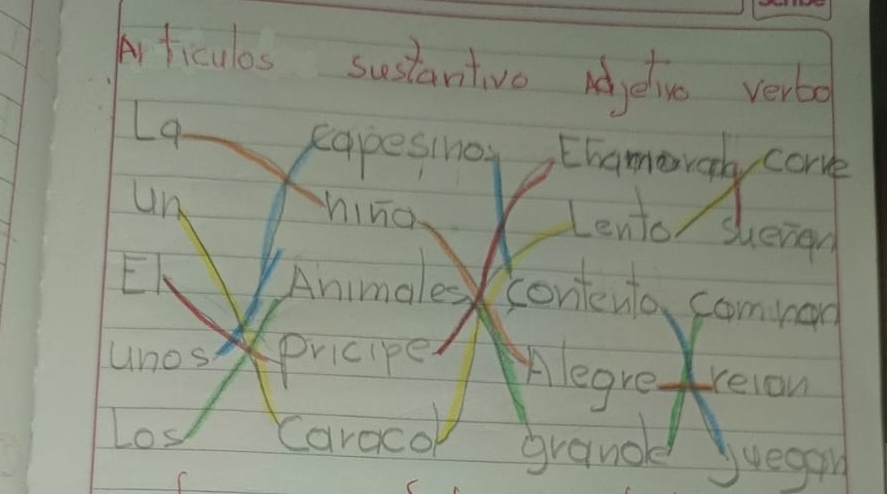 Articulos sustantivo Adjetivo verbo
La capesino Enamorada corre
un niña Lento sueñan
El Animales contento caminan
unos pricipe Alegre reian
Los caracol grande juegan